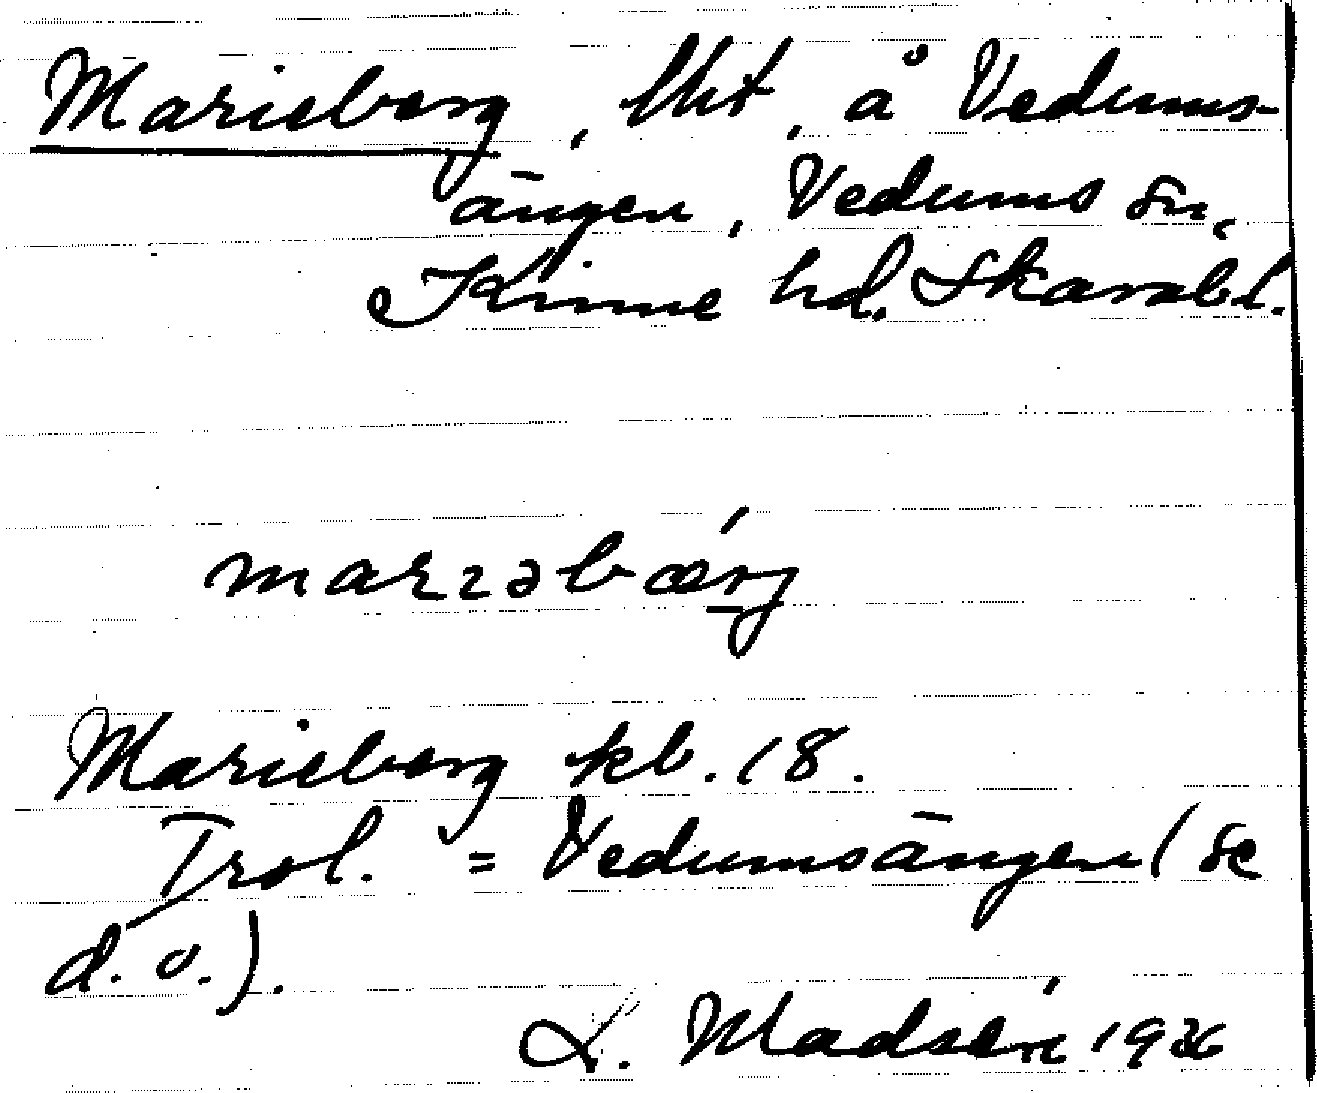 Marieberg, lht, å Vedums-
ängen, Vedums sn,
Kinne hd. Skarabl.
marɩəbærj
Marieberg kb. 18.
Trol. = Vedumsängen (se
d. o.).
L. Madsén 1926